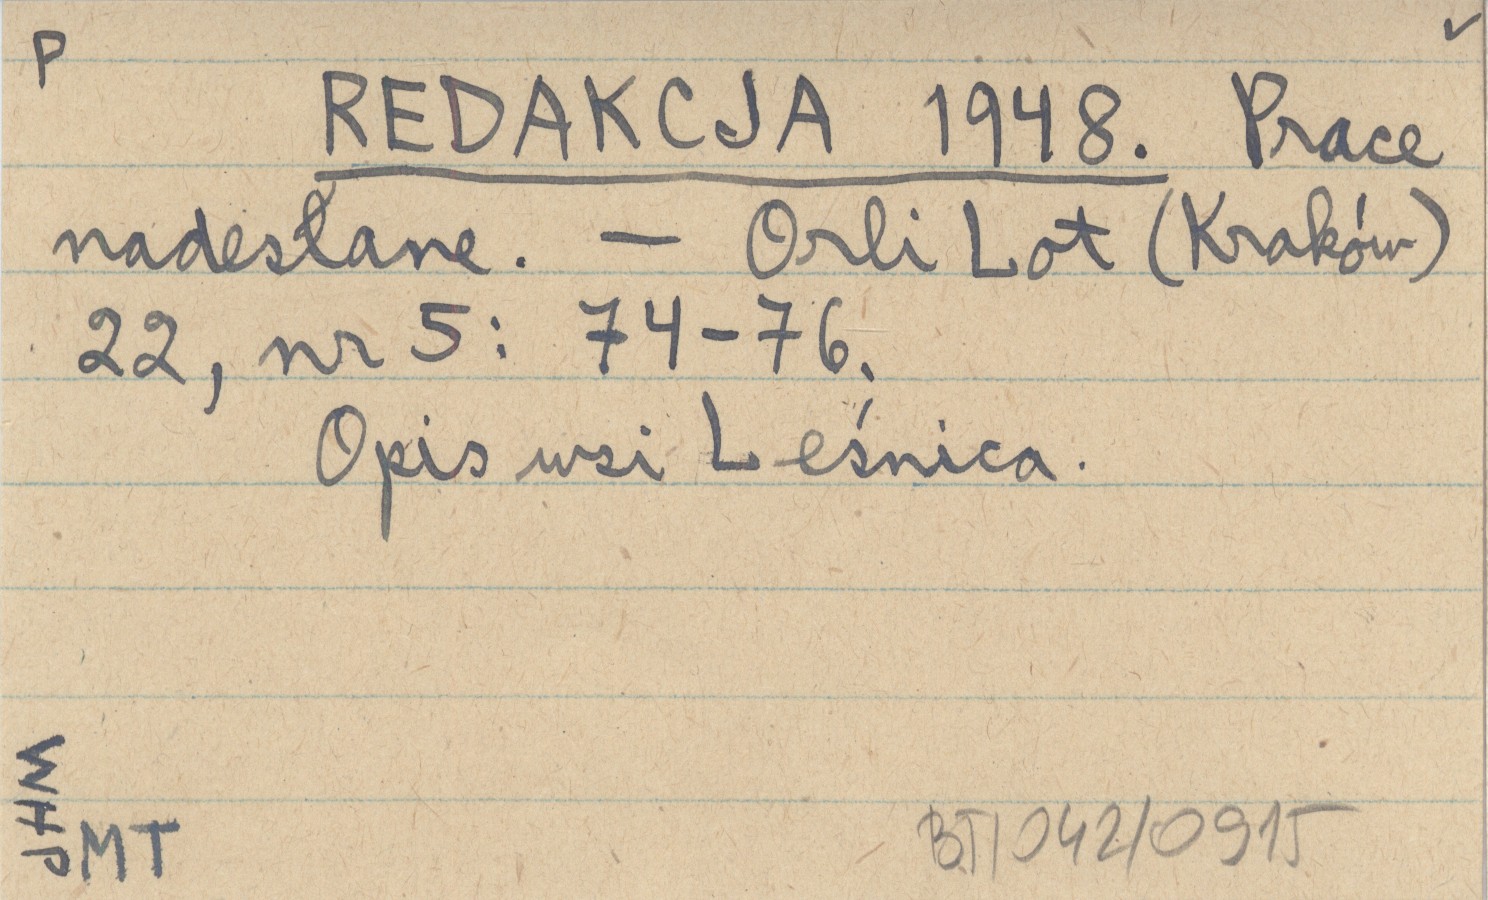 P
REDAKCJA 1948. Prace
nadesłane. — Orli Lot (Kraków)
22, nr 5: 74-76.
Opis wsi Leśnica.
WHJ
MT
BT/042/0915